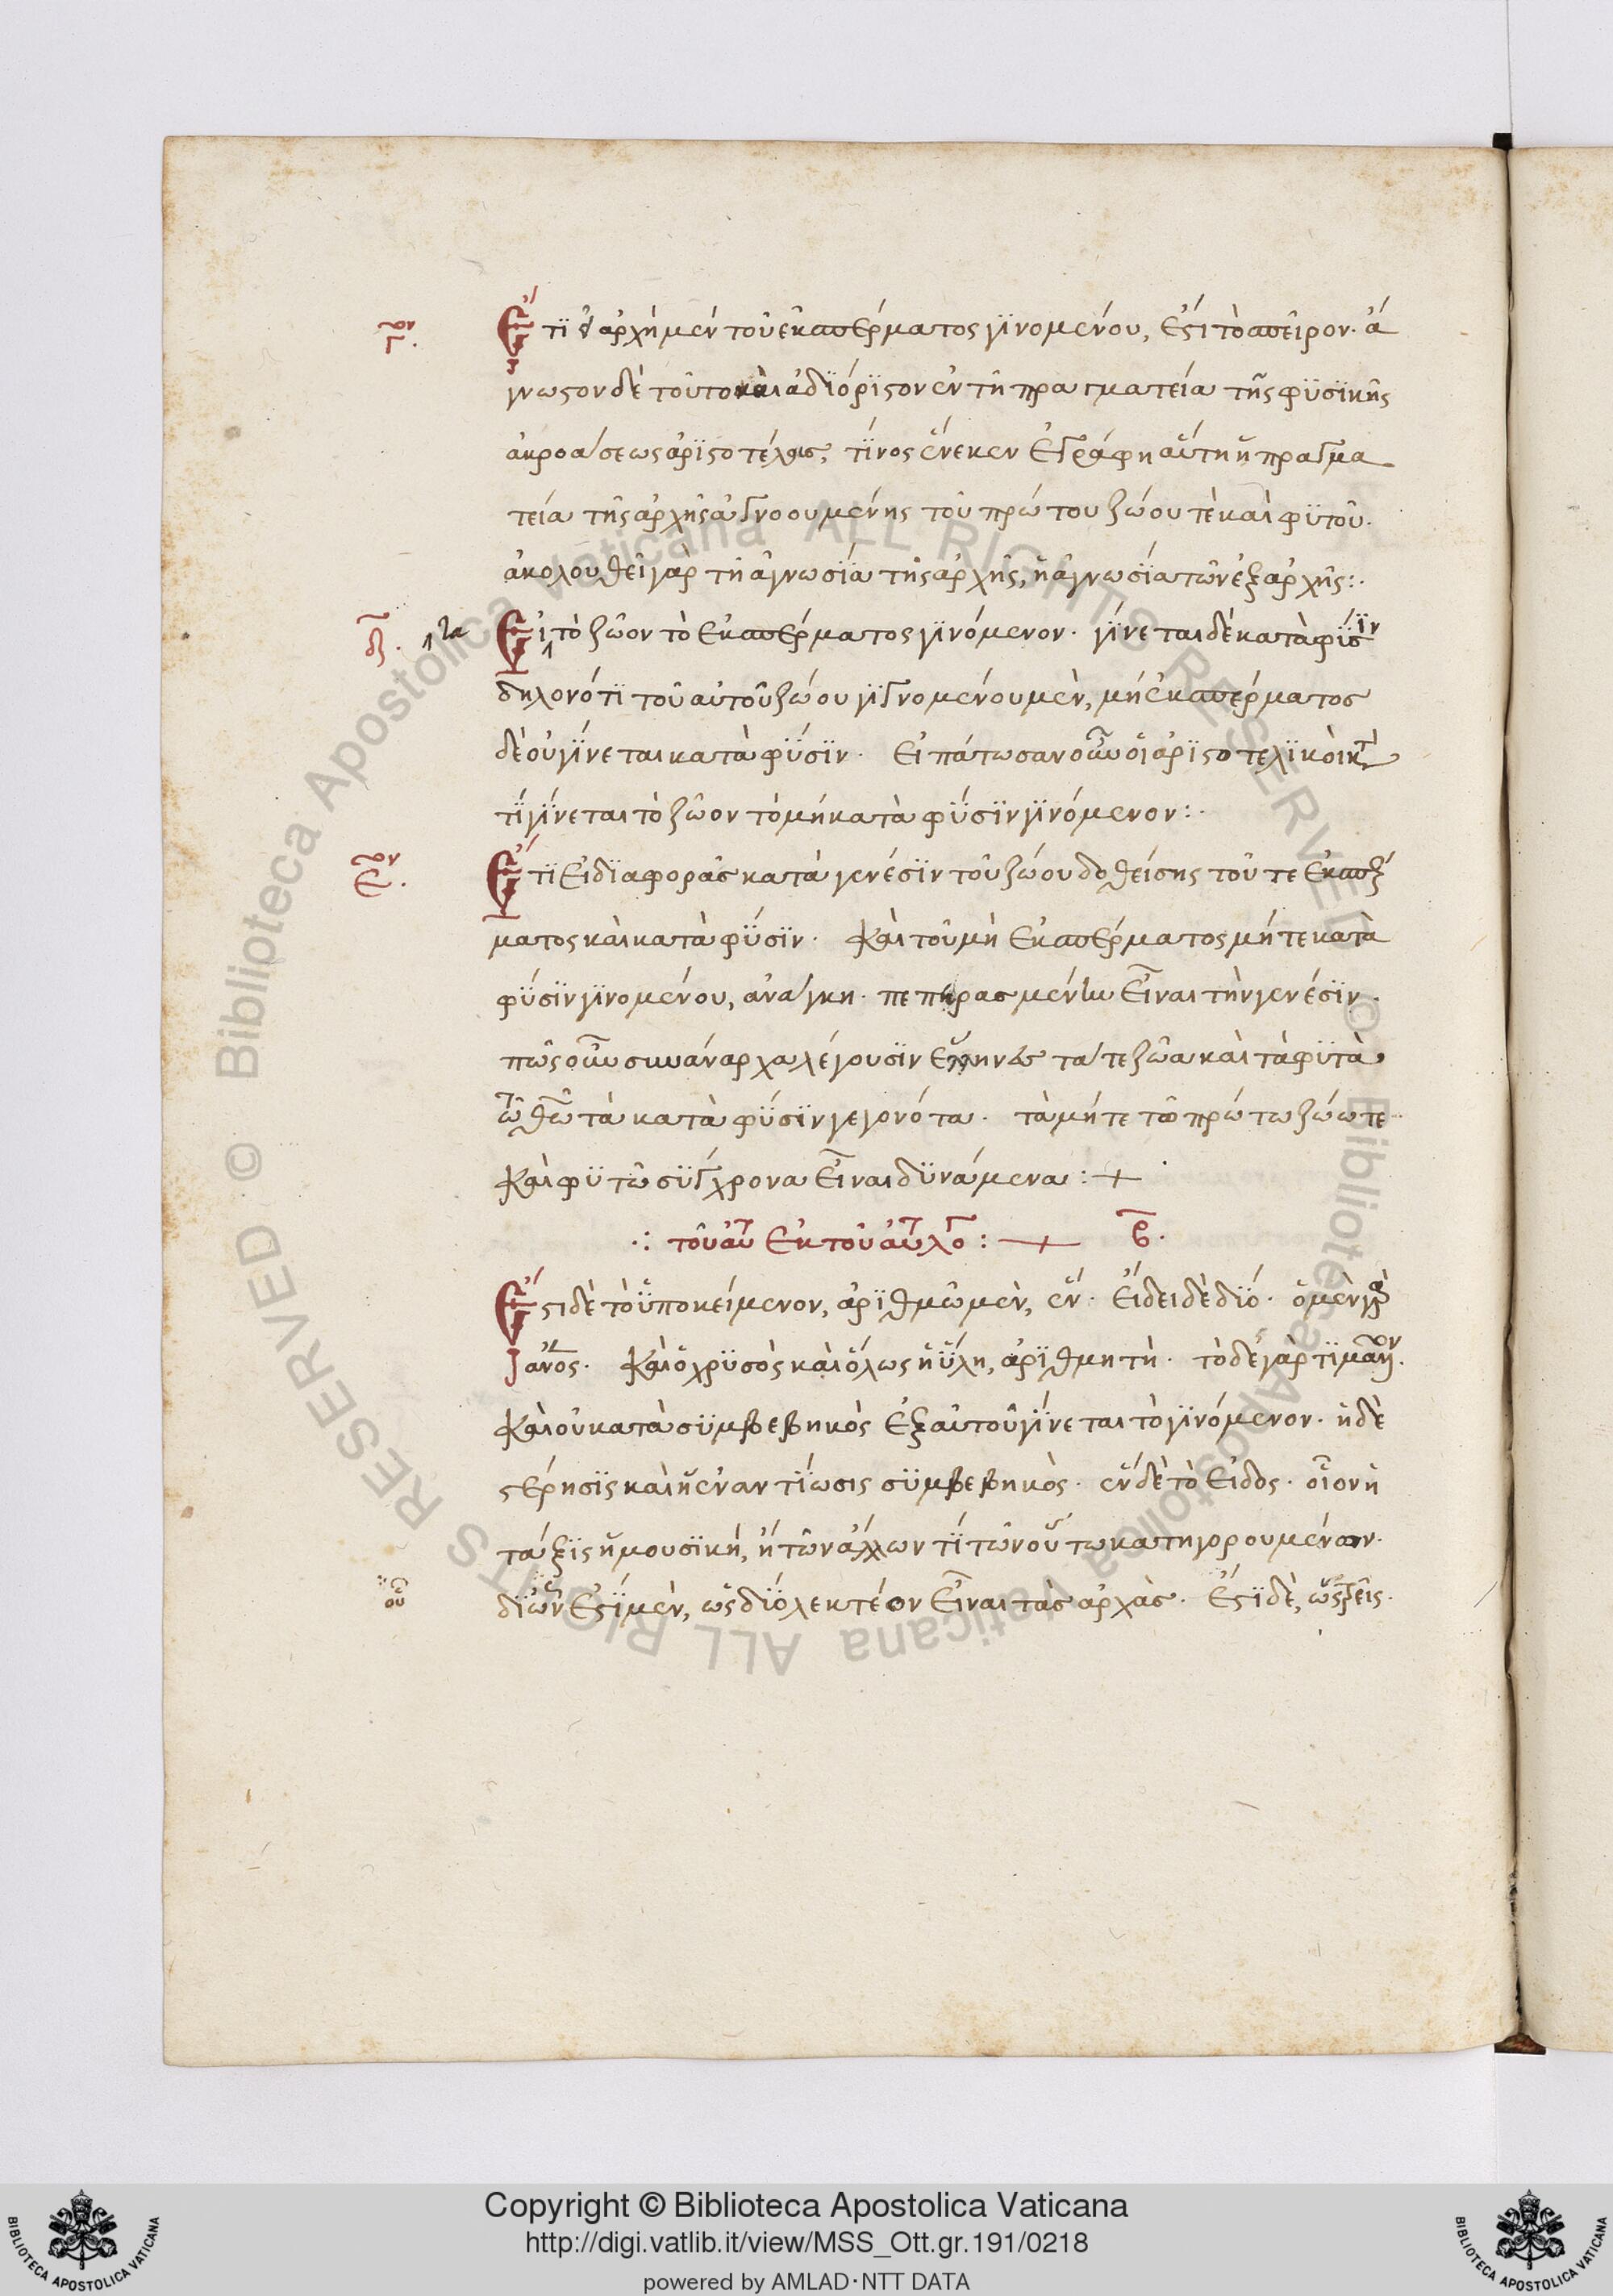 Ἔτϊ εἰ ἀρχὴ μὲν τοῦ ἐκ σπέρματος γϊνομένου, ἐστὶ τὸ ἄπειρον· ἄ
γνωστον δὲ τοῦτο καὶ ἀδϊόρϊστον ἐν τῆ πραγματεία τῆς φϋσϊκῆς
ἀκροάσεως ἀρϊστοτέλους, τίνος ἕνεκεν ἐγράφη αὕτη ἡ πραγμα
τεία τῆς ἀρχῆς ἀγνοουμένης τοῦ πρώτου ζώου τὲ καὶ φϋτοῦ·
ἀκολουθεῖ γὰρ τῆ ἀγνωσΐα τῆς ἀρχῆς, ἡ ἀγνωσΐα τῶν ἐξ ἀρχῆς:·
Εἰ τὸ ζῶον τὸ ἐκ σπέρματος γϊνόμενον· γΐνεται δὲ κατὰ φΰσϊν
δηλονότϊ τοῦ αὐτοῦ ζώου γϊγνομένου μὲν, μὴ ἐκ σπέρματος
δὲ οὐ γΐνεται κατὰ φΰσϊν· εἰπάτωσαν οὖν οἱ ἀρϊστοτελϊκοὶ κατὰ
τΐ γΐνεται τὸ ζῶον τὸ μὴ κατὰ φΰσϊν γϊνόμενον:·
Ἔτϊ εἰ δϊαφορᾶς κατὰ γενέσϊν τοῦ ζώου δοθείσης τοῦ τε ἐκ σπέρ
ματος καὶ κατὰ φΰσϊν· καὶ τοῦ μὴ ἐκ σπέρματος μήτε κατὰ
φΰσϊν γϊνομένου, ἀνάγκη· πεπερασμένην εἶναι τὴν γενέσϊν·
πῶς οὖν συνάναρχα λέγουσϊν ἕλληνες τά τε ζῶα καὶ τὰ φϋτὰ
τῶ θεῶ τὰ κατὰ φΰσϊν γεγονότα· τὰ μήτε τῶ πρώτω ζώω τε
καὶ φϋτῶ σϋγχρονα εἶναι δϋνάμενα:+
·: τοῦ αὐτοῦ ἐκ τοῦ αὐτοῦ λόγου:—+ β·
Ἔστι δὲ τὸ ϋποκείμενον, ἀρϊθμῶ μὲν, ἕν· εἴδει δὲ δϊό· ὁ μὲν γὰρ
ἄνθρωπος· καὶ ὁ χρϋσὸς καὶ ὅλως ἡ ὕλη, ἀρϊθμητὴ· τὸ δέ γὰρ τϊ μᾶλλον·
καὶ οὐ κατὰ σϋμβεβηκὸς ἐξ αὐτοῦ γΐνεται τὸ γϊνόμενον· ἡ δὲ
στέρησϊς καὶ ἡ ἐναντΐωσις σϋμβεβηκὸς· ἓν δὲ τὸ εἶδος· οἷον ἡ
τάξϊς ἢ μουσϊκή, ἢ τῶν ἄλλων τΐ τῶν οὕτω κατηγορουμένων·
δϊὼ ἔστϊ μὲν, ὡς δϊό λεκτέον εἶναι τὰς ἀρχὰς· ἔστϊ δὲ, ὡς τρεῖς·
Copyright © Biblioteca Apostolica Vaticana
http://digi.vatlib.it/view/MSS_Ott.gr.191/0218
powered by AMLAD·NTT DATA